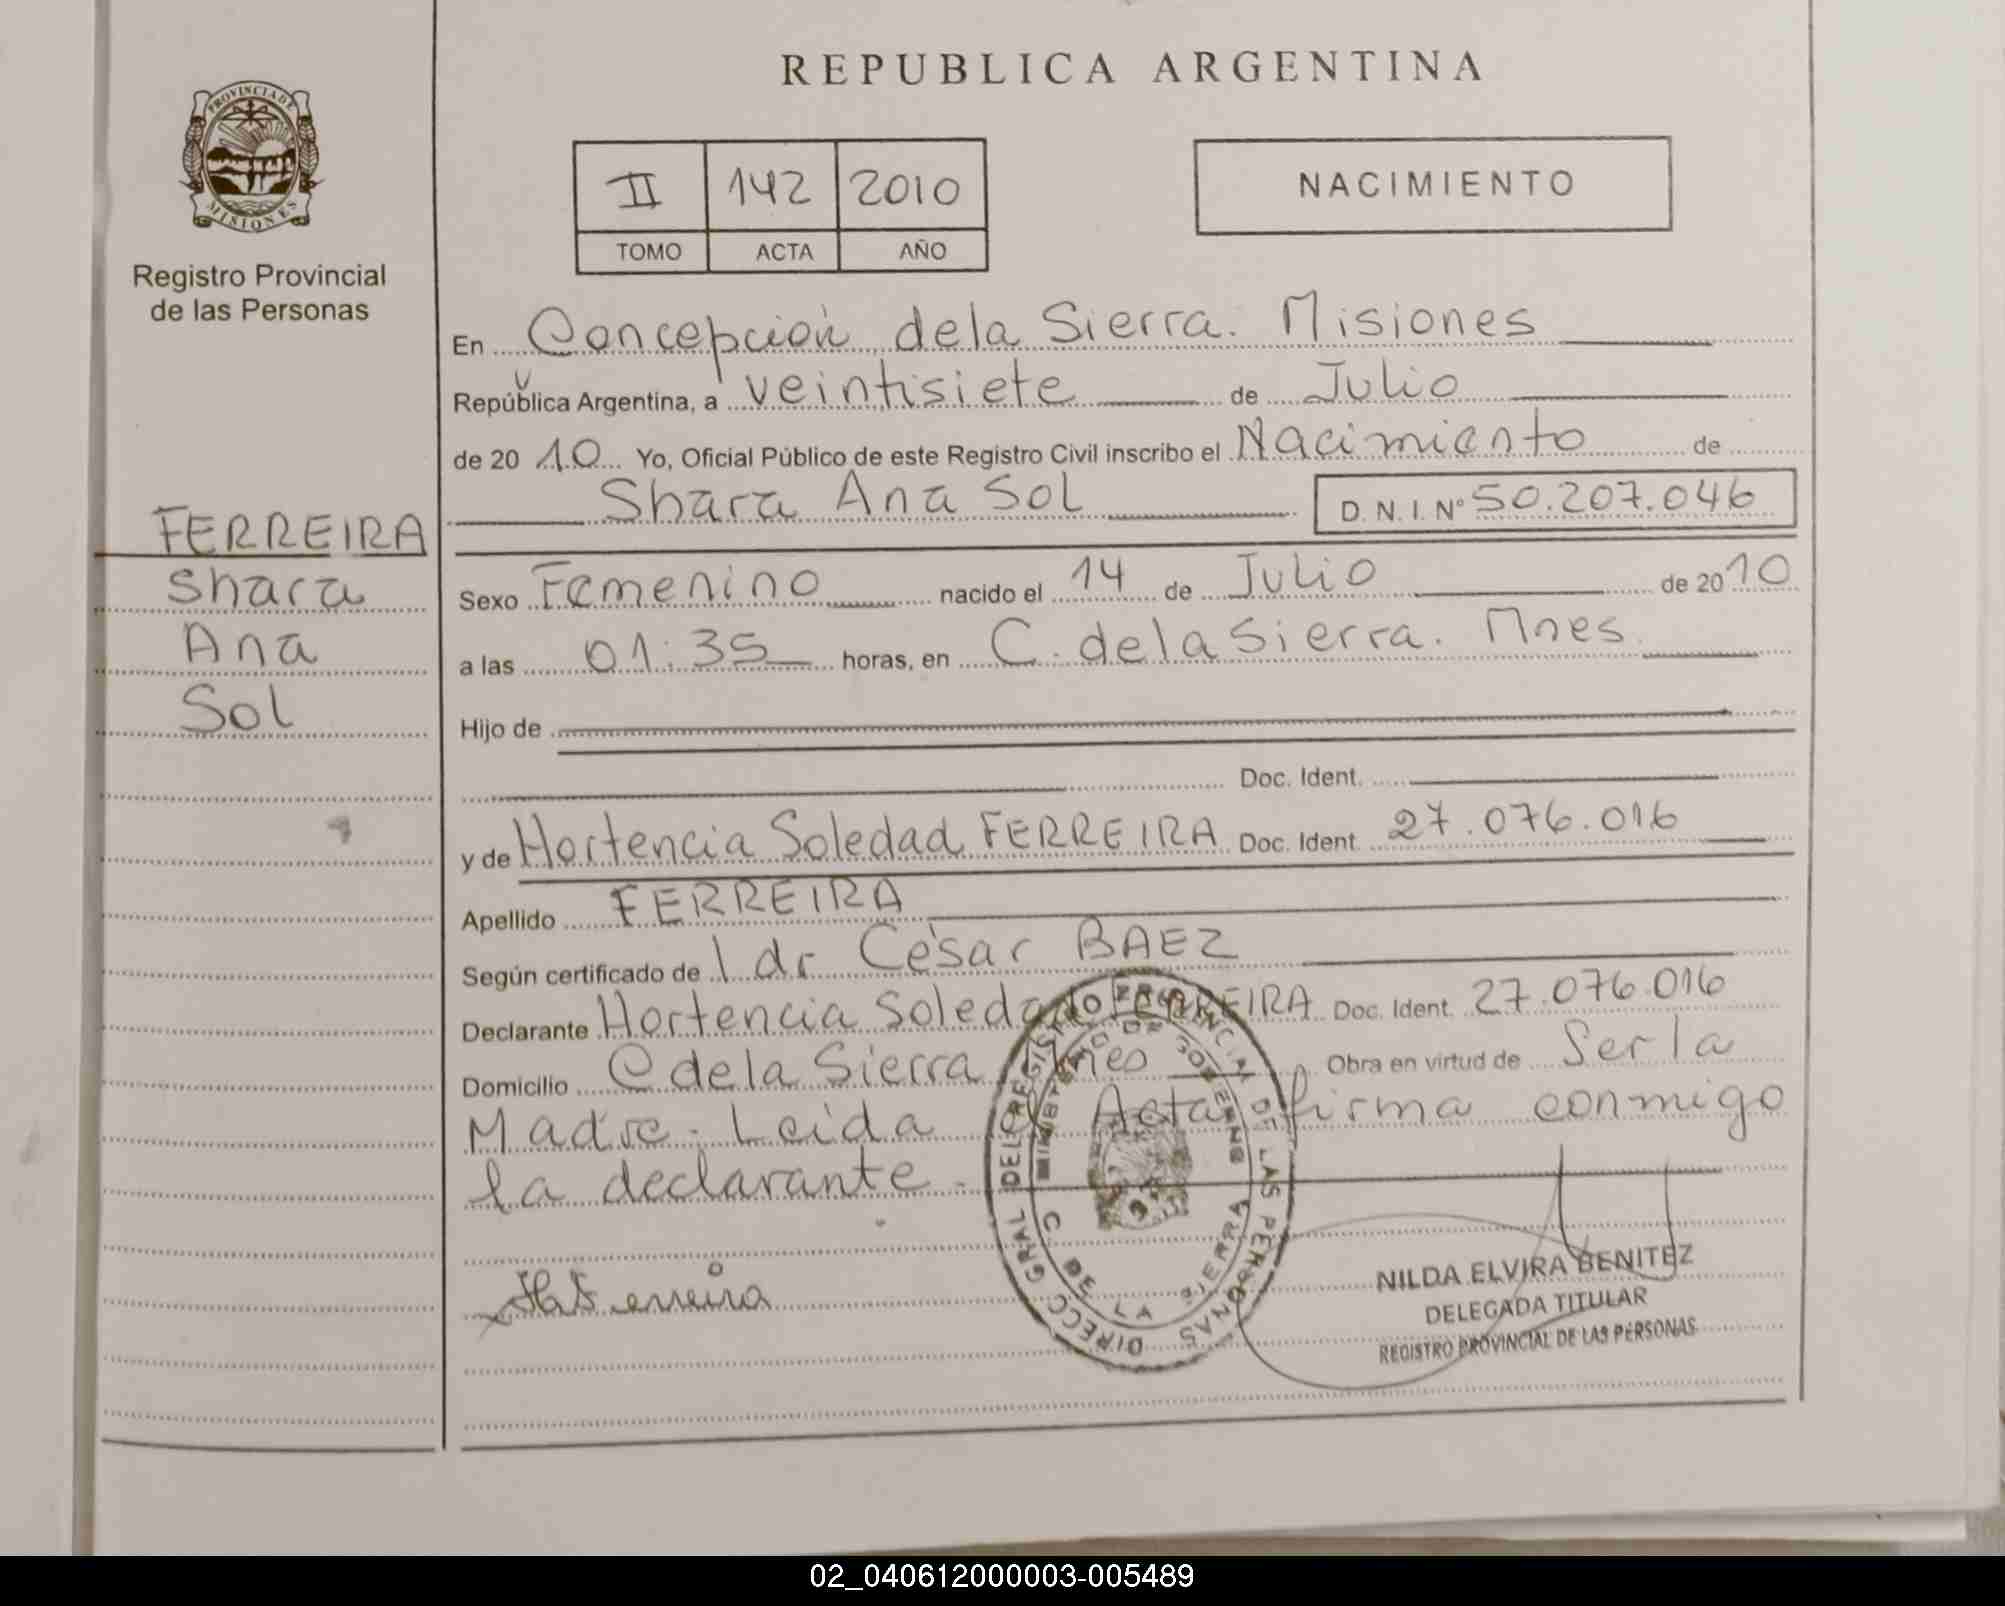 PROVINCIA DE
MISIONES
Registro Provincial
de las Personas
FERREIRA
Shara
Ana
Sol
REPUBLICA ARGENTINA
II 142 2010
TOMO ACTA AÑO
NACIMIENTO
En Concepción de la Sierra. Misiones
República Argentina, a veintisiete de Julio
de 20 10 Yo, Oficial Público de este Registro Civil inscribo el Nacimiento de
Shara Ana Sol D. N. I. Nº 50.207.046
Sexo Femenino nacido el 14 de Julio de 20 10
a las 01:35 horas, en C. de la Sierra. Mnes.
Hijo de
Doc. Ident.
y de Hortencia Soledad FERREIRA Doc. Ident. 27.076.016
Apellido FERREIRA
Según certificado de l dr César BAEZ
Declarante Hortencia Soledad FERREIRA Doc. Ident. 27.076.016
Domicilio C de la Sierra Mnes Obra en virtud de Ser la
Madre. Leida el Acta firma conmigo
la declarante.
DIRECC GRAL DEL REGISTRO PROVINCIAL DE LAS PERSONAS
MINISTERIO DE GOBIERNO
C. DE LA SIERRA
H S Ferreira
NILDA ELVIRA BENITEZ
DELEGADA TITULAR
REGISTRO PROVINCIAL DE LAS PERSONAS
02_040612000003-005489